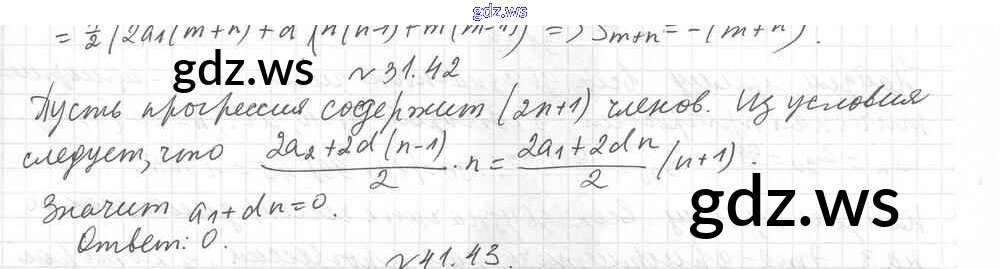 gdz.ws
= 1/2 (2a₁(m+n)+d(n(n-1)+m(m-1)) => Sm+n = -(m+n).
gdz.ws
№31.42
Пусть прогрессия содержит (2n+1) членов. Из условия
следует, что (2a₂+2d(n-1))/2 · n = (2a₁+2dn)/2 (n+1).
Значит a₁+dn=0.
gdz.ws
Ответ: 0.
№41.43.